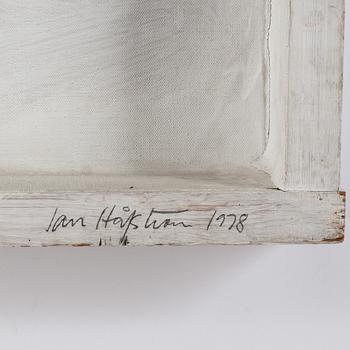 Jan Håfström 1978